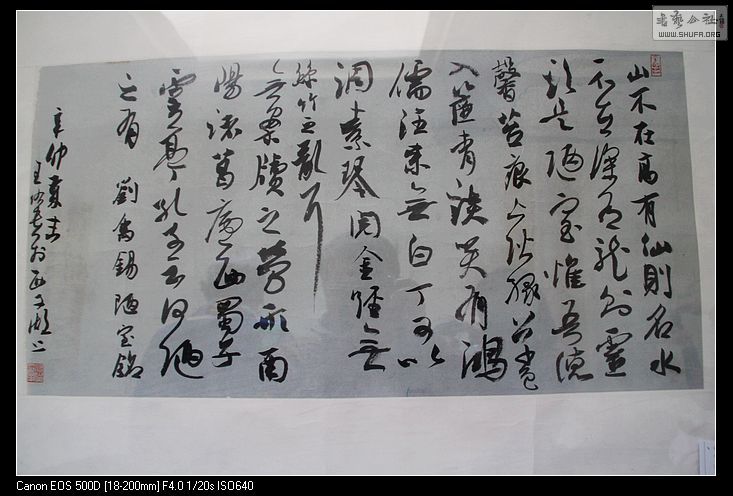 山不在高有仙則名水
不在深有龍則靈
斯是陋室惟吾德
馨苔痕上階綠草色
入簾青談笑有鴻
儒往來無白丁可以
調素琴閱金經無
絲竹之亂耳
無案牘之勞形南
陽諸葛廬西蜀子
雲亭孔子云何陋
之有 劉禹錫陋室銘
辛卯夏書
於西子湖上
書藝公社
WWW.SHUFA.ORG
Canon EOS 500D [18-200mm] F4.0 1/20s ISO640